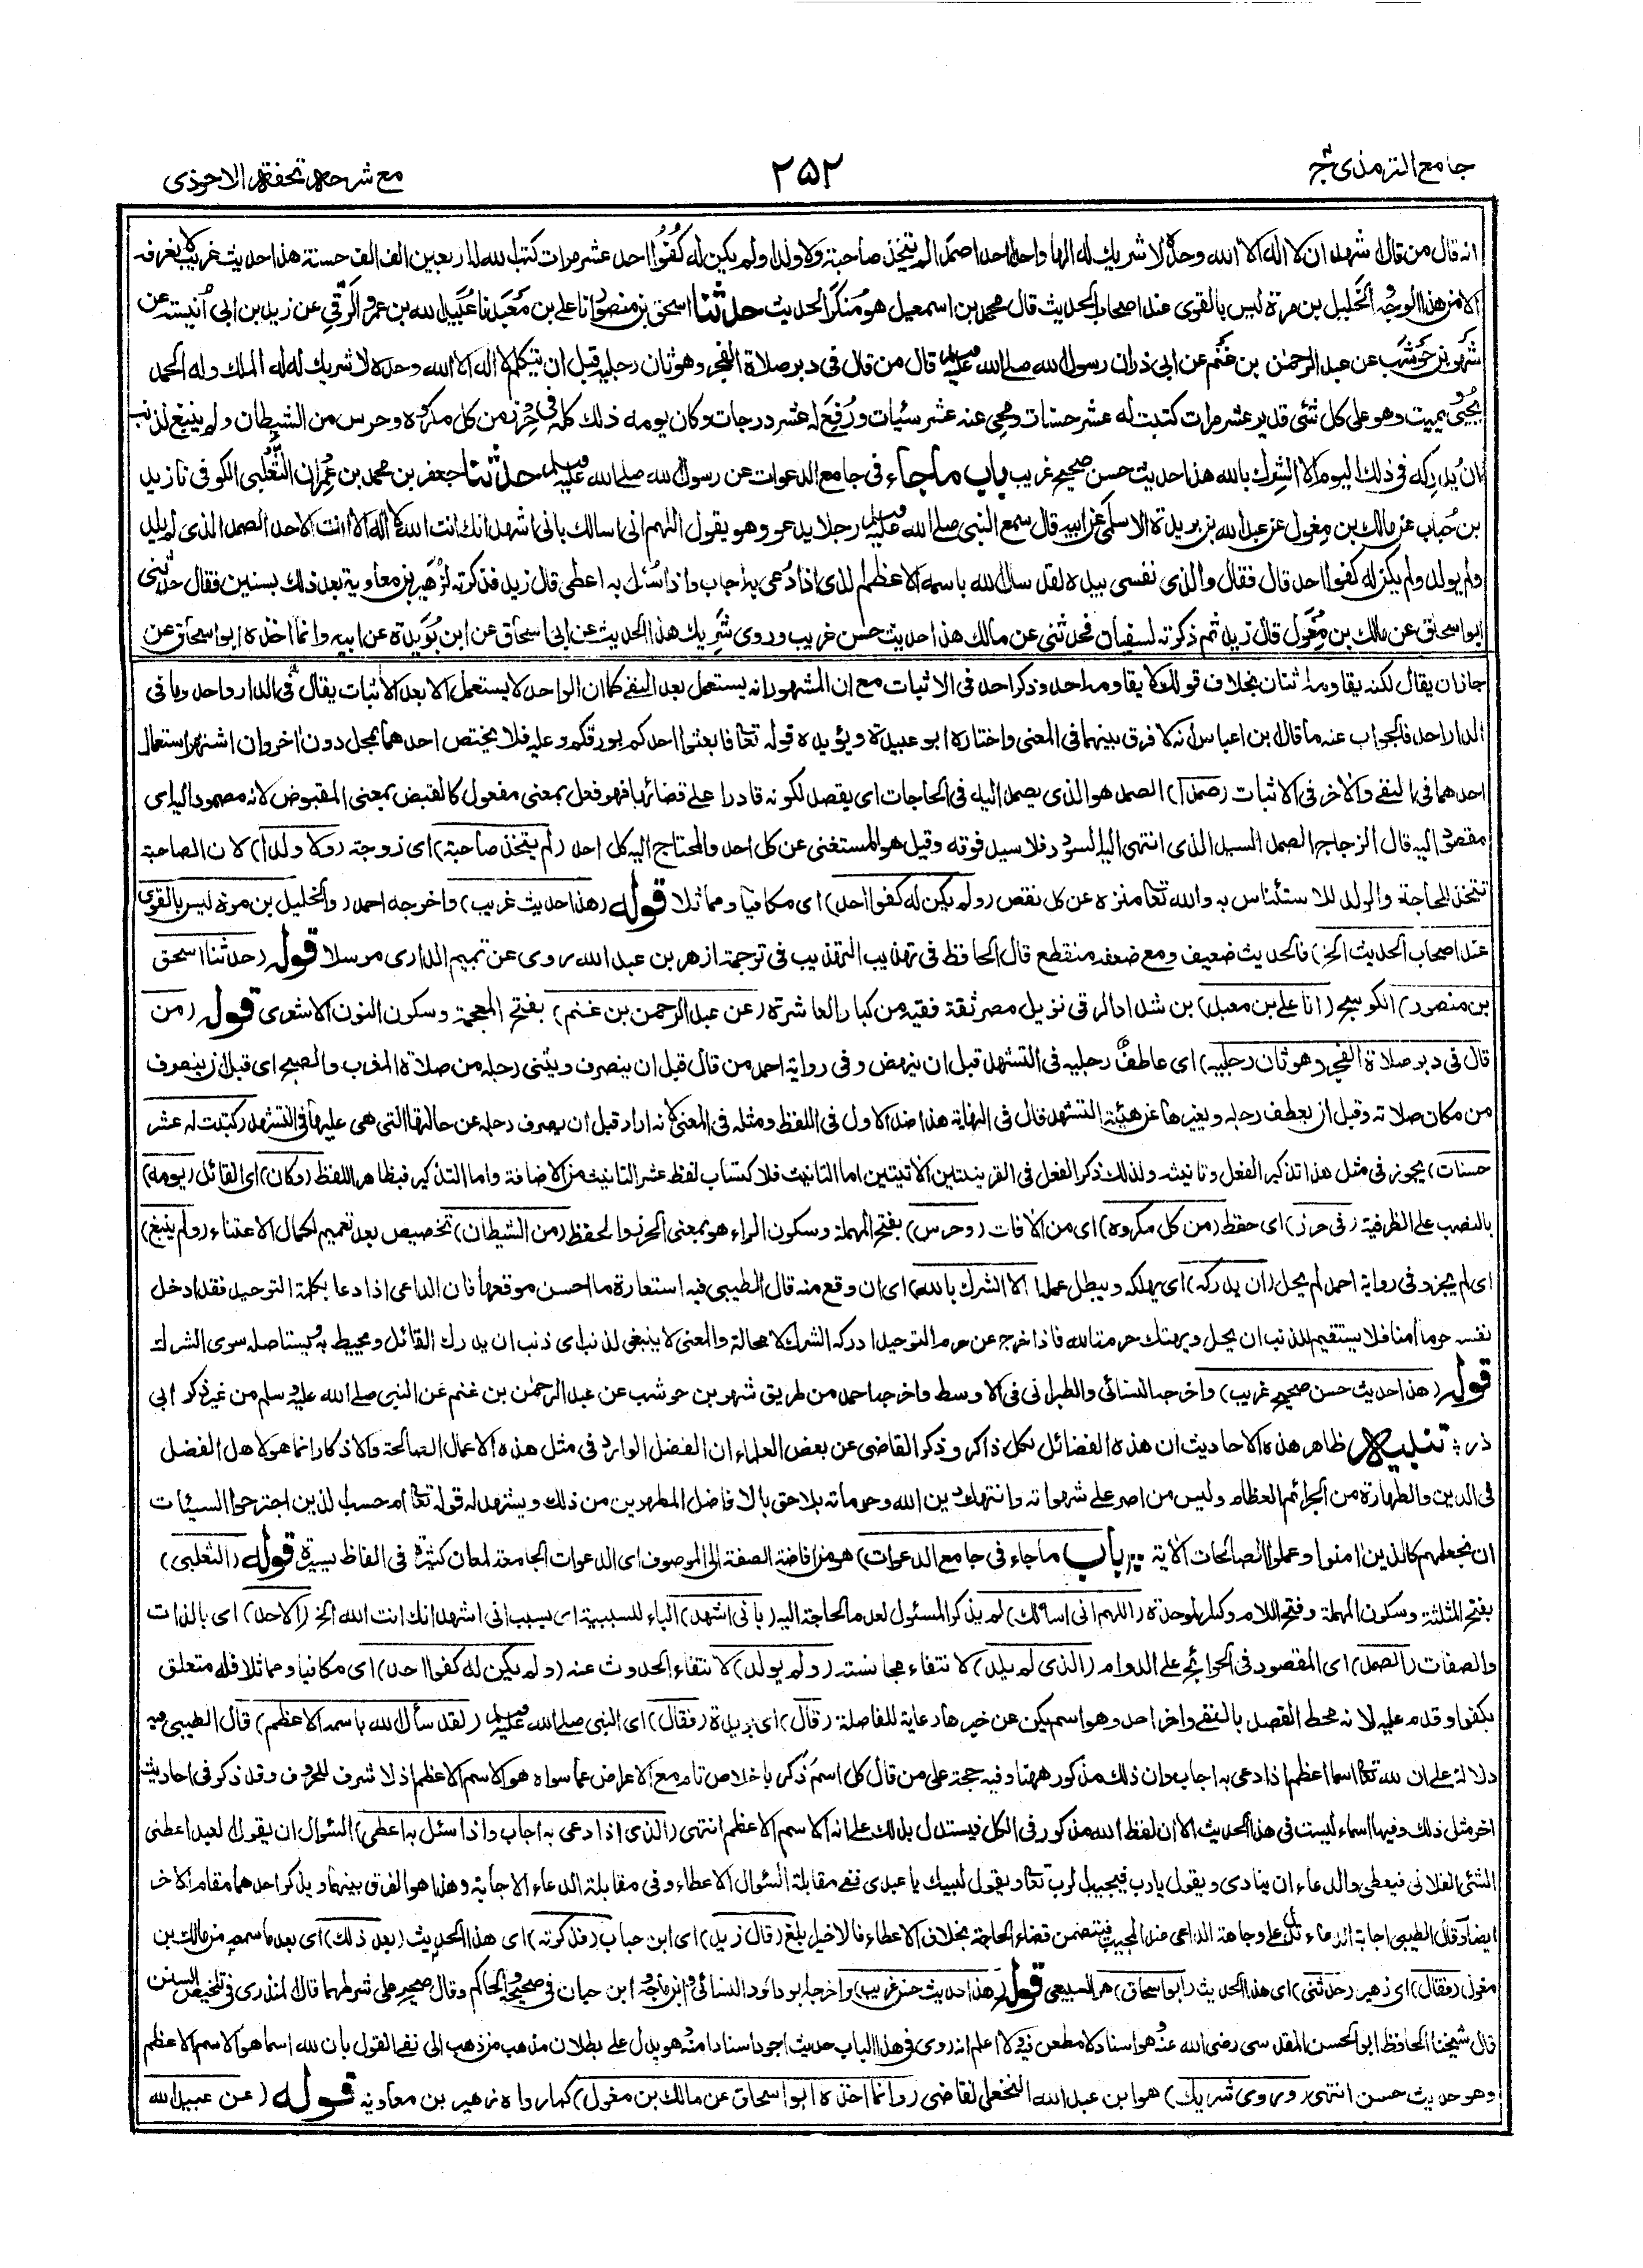 جامع الترمذی ج٤
٢٥٢
مع شرحه تحفة الاحوذی
انه قال من قال اشهد ان لا اله الا الله وحده لا شريك له الها واحدا احدا صمدا لم يتخذ صاحبة ولا ولدا ولم يكن له كُفُوًا احد عشر مرات كتب الله له اربعين الف الف حسنة هذا حديث غريب لا نعرفه
الا من هذا الوجه الخَليل بن مرة ليس بالقوی عند اصحاب الحديث قال محمد بن اسمعيل هو مُنكَر الحديث حدثنا اسحق بن منصور نا علی بن مَعْبَد نا عُبَيد الله بن عمرو الرَّقِّی عن زيد بن ابی أُنَيسة عن
شَهْر بن حَوشَب عن عبد الرحمٰن بن غَنْم عن ابی ذر ان رسول الله صلے الله عليه وسلم قال من قال فی دبر صلاة الفجر وهو ثان رجليه قبل ان يتكلم لا اله الا الله وحده لا شريك له له الملك وله الحمد
يحيی ويميت وهو علی كل شئی قدير عشر مرات كتبت له عشر حسنات ومُحِی عنه عشر سيئات ورُفِعَ له عشر درجات وكان يومه ذلك كله فی حِرْز من كل مكروه وحرس من الشيطان ولم ينبغ لذنب
ان يُدرِكه فی ذلك اليوم الا الشِّرك بالله هذا حديث حسن صحيح غريب باب ما جاء فی جامع الدعوات عن رسول الله صلے الله عليه وسلم حدثنا جعفر بن محمد بن عِمران الثَّعلَبی الكوفی نا زيد
بن حُباب عن مالك بن مِغوَل عن عبد الله بن بريدة الاسلمی عن ابيه قال سمع النبی صلے الله عليه وسلم رجلا يدعو وهو يقول اللهم انی اسالك بانی اشهد انك انت الله لا اله الا انت الاحد الصمد الذی لم يلد
ولم يولد ولم يكن له كفوا احد قال فقال والذی نفسی بيده لقد سال الله باسمه الاعظم الذی اذا دُعی به اجاب واذا سُئل به اعطی قال زيد فذكرته لزُهَير بن معاوية بعد ذلك بسنين فقال حدثنی
ابو اسحاق عن مالك بن مِغوَل قال زيد ثم ذكرته لسفيان فحدثنی عن مالك هذا حديث حسن غريب وروی شَرِيك هذا الحديث عن ابی اسحاق عن ابن بُرَيدة عن ابيه وانما اخذه ابو اسحاق عن
جاز ان يقال لكنه يقاومه اثنان بخلاف قولك لا يقاومه احد وذكر احد فی الاثبات مع ان المشهور انه يستعمل بعد النفے كما ان الواحد لا يستعمل الا بعد الاثبات يقال فی الدار واحد وما فی
الدار احد فالجواب عنه ما قال ابن عباس انه لا فرق بينهما فی المعنی واختاره ابو عبيدة ويؤيده قوله تعالٰی فابعثوا احدكم بورقكم وعليه فلا يختص احدهما بمحل دون اخر وان اشتهر استعمال
احدهما فی النفے والاخر فی الاثبات (صمدا) الصمد هو الذی يصمد اليه فی الحاجات ای يقصد لكونه قادرا علے قضائها فهو فعل بمعنی مفعول كالقبض بمعنی المقبوض لانه مصمود اليه ای
مقصود اليه قال الزجاج الصمد السيد الذی انتهی اليه السودد فلا سيد فوقه وقيل هو المستغنی عن كل احد والمحتاج اليه كل احد (لم يتخذ صاحبة) ای زوجة (ولا ولدا) لان الصاحبة
تتخذ للحاجة والولد للاستئناس به والله تعالٰی منزه عن كل نقص (ولم يكن له كفوا احد) ای مكافيا ومماثلا قوله (هذا حديث غريب) واخرجه احمد (والخليل بن مرة ليس بالقوی
عند اصحاب الحديث الخ) فالحديث ضعيف ومع ضعفه منقطع قال الحافظ فی تهذيب التهذيب فی ترجمة ازهر بن عبد الله روی عن تميم الداری مرسلا قوله (حدثنا اسحق
بن منصور) الكوسج (انا علی بن معبد) بن شداد الرقی نزيل مصر ثقة فقيه من كبار العاشرة (عن عبد الرحمن بن غنم) بفتح المعجمة وسكون النون الاشعری قوله (من
قال فی دبر صلاة الفجر وهو ثان رجليه) ای عاطف رجليه فی التشهد قبل ان ينهض وفی رواية احمد من قال قبل ان ينصرف ويثنی رجله من صلاة المغرب والصبح ای قبل ان ينصرف
من مكان صلاته وقبل ان يعطف رجله ويغيرها عن هيئة التشهد قال فی النهاية هذا ضد الاول فی اللفظ ومثله فی المعنی لانه اراد قبل ان يصرف رجله عن حالتها التی هی عليها فی التشهد (كتبت له عشر
حسنات) يجوز فی مثل هذا تذكير الفعل وتانيثه ولذلك ذكر الفعل فی القرينتين الاتيتين اما التانيث فلاكتساب لفظ عشر التانيث من الاضافة واما التذكير فبظاهر اللفظ (وكان) ای القائل (يومه)
بالنصب علی الظرفية (فی حرز) ای حفظ (من كل مكروه) ای من الافات (وحرس) بفتح المهملة وسكون الراء هو بمعنی الحرز والحفظ (من الشيطان) تخصيص بعد تعميم لكمال الاعتناء (ولم ينبغ)
ای لم يجز وفی رواية احمد لم يحل (ان يدركه) ای يهلكه ويبطل عمله (الا الشرك بالله) ای ان وقع منه قال الطيبی فيه استعارة ما احسن موقعها فان الداعی اذا دعا بكلمة التوحيد فقد ادخل
نفسه حرما امنا فلا يستقيم للذنب ان يحل ويهتك حرمة الله فاذا خرج عن حرم التوحيد ادركه الشرك لا محالة والمعنی لا ينبغی لذنب ای ذنب ان يدرك القائل ويحيط به ويستاصله سوی الشرك
قوله (هذا حديث حسن صحيح غريب) واخرجه النسائی والطبرانی فی الاوسط واخرجه احمد من طريق شهر بن حوشب عن عبد الرحمٰن بن غنم عن النبی صلے الله عليه وسلم من غير ذكر ابی
ذر ۞ تنبيه ظاهر هذه الاحاديث ان هذه الفضائل لكل ذاكر وذكر القاضی عن بعض العلماء ان الفضل الوارد فی مثل هذه الاعمال الصالحة والاذكار انما هو لاهل الفضل
فی الدين والطهارة من الجرائم العظام وليس من اصر علی شهواته وانتهك دين الله وحرماته بلاحق بالافاضل المطهرين من ذلك ويشهد له قوله تعالٰی ام حسب الذين اجترحوا السيئات
ان نجعلهم كالذين امنوا وعملوا الصالحات الاية ۞ (باب ما جاء فی جامع الدعوات) هو من اضافة الصفة الی الموصوف ای الدعوات الجامعة لمعان كثيرة فی الفاظ يسيرة قوله (الثعلبی)
بفتح المثلثة وسكون المهملة وفتح اللام وكسر الموحدة (اللهم انی اسألك) لم يذكر المسئول لعدم الحاجة اليه (بانی اشهد) الباء للسببية ای بسبب انی اشهد انك انت الله الخ (الاحد) ای بالذات
والصفات (الصمد) ای المقصود فی الحوائج علی الدوام (الذی لم يلد) لانتفاء مجانسته (ولم يولد) لانتفاء الحدوث عنه (ولم يكن له كفوا احد) ای مكافيا ومماثلا فله متعلق
بكفوا وقدم عليه لانه محط القصد بالنفے واخر احد وهو اسم يكن عن خبرها رعاية للفاصلة (قال) ای بريدة (فقال) ای النبی صلے الله عليه وسلم (لقد سأل الله باسمه الاعظم) قال الطيبی فيه
دلالة علی ان لله تعالٰی اسما اعظم اذا دعی به اجاب وان ذلك مذكور ههنا وفيه حجة علی من قال كل اسم ذكر باخلاص تام مع الاعراض عما سواه هو الاسم الاعظم اذ لا شرف للحروف وقد ذكر فی احاديث
اخر مثل ذلك وفيها اسماء ليست فی هذا الحديث الا ان لفظ الله مذكور فی الكل فيستدل بذلك علی انه الاسم الاعظم انتهی (الذی اذا دعی به اجاب واذا سئل به اعطی) السؤال ان يقول العبد اعطنی
الشئی الفلانی فيعطی والدعاء ان ينادی ويقول يا رب فيجيب الرب تعالٰی ويقول لبيك يا عبدی ففی مقابلة السؤال الاعطاء وفی مقابلة الدعاء الاجابة وهذا هو الفرق بينهما ويذكر احدهما مقام الاخر
ايضا وقال الطيبی اجابة الدعاء تدل علی وجاهة الداعی عند المجيب فيتضمن قضاء الحاجة بخلاف الاعطاء فالاخير ابلغ (قال زيد) ای ابن حباب (فذكرته) ای هذا الحديث (بعد ذلك) ای بعد ما سمعه من مالك بن
مغول (فقال) ای زهير (حدثنی) ای هذا الحديث (ابو اسحاق) هو السبيعی قوله (هذا حديث حسن غريب) واخرجه ابو داود والنسائی وابن ماجه وابن حبان فی صحيحه والحاكم وقال صحيح علی شرطهما قال المنذری فی تلخيص السنن
قال شيخنا الحافظ ابو الحسن المقدسی رضی الله عنه هو اسناد لا مطعن فيه ولا اعلم انه روی فی هذا الباب حديث اجود اسنادا منه وهو يدل علی بطلان مذهب من ذهب الی نفی القول بان لله اسما هو الاسم الاعظم
وهو حديث حسن انتهی (وروی شريك) هو ابن عبد الله النخعی القاضی (وانما اخذه ابو اسحاق عن مالك بن مغول) كما رواه زهير بن معاوية قوله (عن عبيد الله